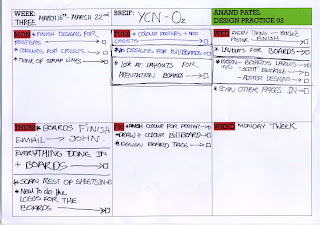 WEEK: MARCH 16th - MARCH 22nd
THREE
BREIF: YCN - O2
ANAND PATEL
DESIGN PRACTICE 02
MON
* FINISH DESIGNS FOR
POSTERS
* COLOURS FOR CRESTS
* THINK OF STRAP LINES
TUES
* COLOUR POSTERS + ADD
CRESTS
* DESIGNS FOR BILLBOARDS
* LOOK AT LAYOUTS FOR
PRESENTATION BOARDS
WED
EVERY THING
POSTER - FINISH
* LAYOUTS FOR BOARDS
BOARDS LAYOUTS
- POSTER DESIGNS
* SCAN OTHER PAGES IN
THURS
* BOARDS FINISH
EMAIL → JOHN
EVERYTHING GOING IN
+ BOARDS
* SCAN REST OF SHEETS IN
* NEED TO DO THE
LOGOS FOR THE
BOARDS
FRI
* FINISH COLOUR FOR POSTER
- DRAW + COLOUR BILLBOARD
* DESIGN BOARD TAGS
WKND
MONDAY TWEEK